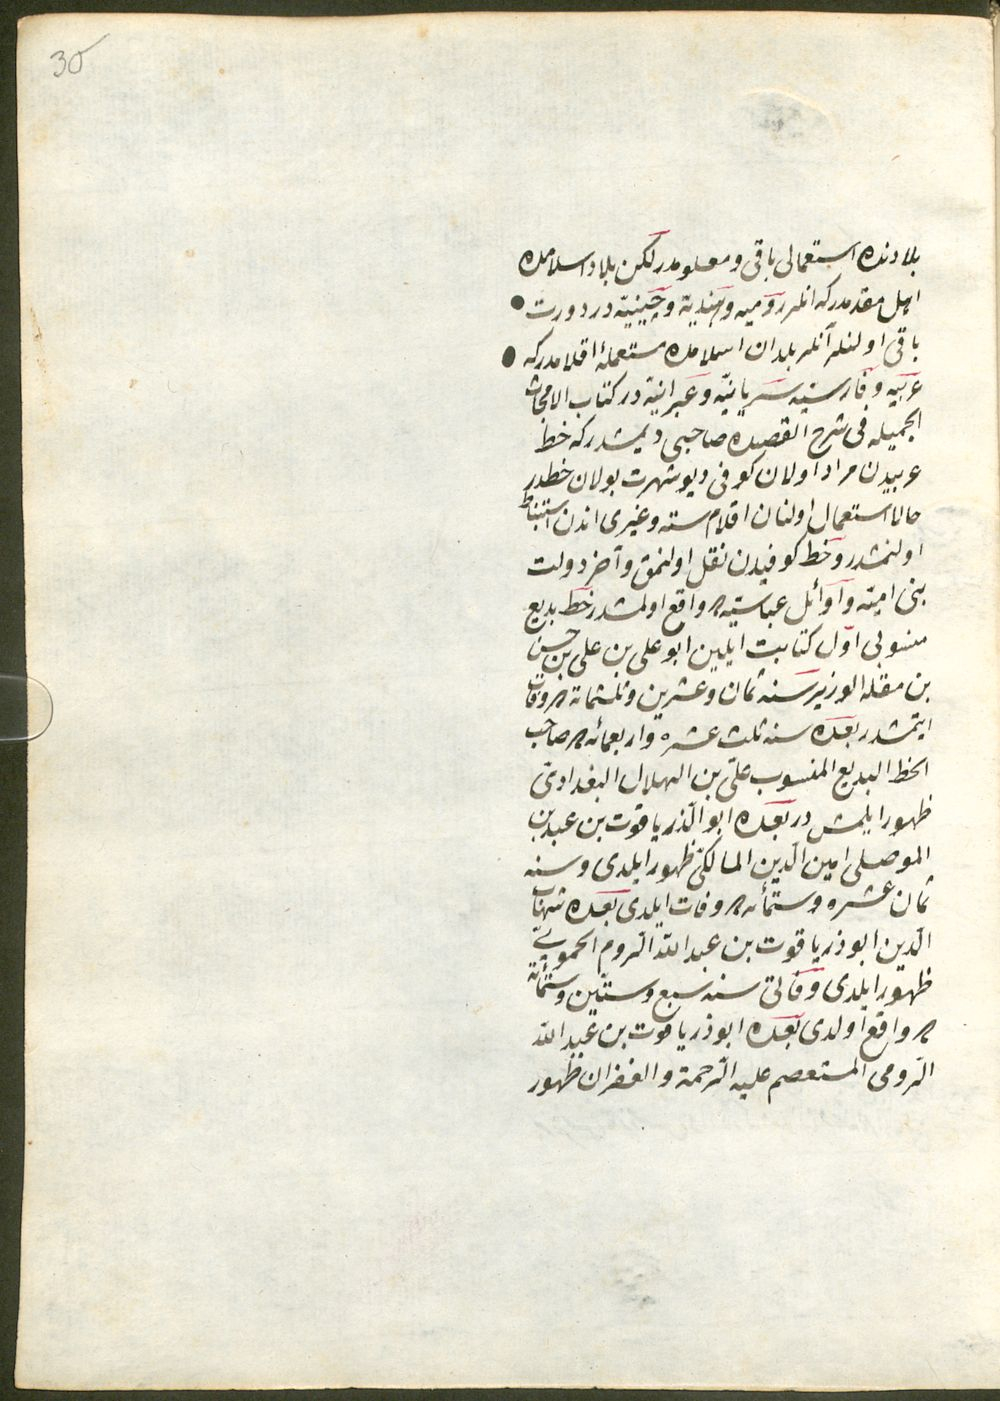 30
بلادنده استعمالی باقی و معلومدر لکن بلاد اسلامده
اهل مقدمدرکه انلر رومیه و هندیة و چینیّه در دورت
باقی اولنلر آنلر بلدان اسلامده مستعملۀ اقلامدرکه
عربیه و فارسیه سریانیّه و عبرانیّه در کتاب الابحاث
الجمیله فی شرح القصیده صاحبی دیمشدرکه خط
عربیدن مراد اولان کوفی دیو شهرت بولان خطدر
حالا استعمال اولنان اقلام سته و غیری اندن استنباط
اولنمشدر و خط کوفیدن نقل اولنمق و آخر دولت
بنی امیّه و اوائل عباسیّه ده واقع اولمشدر خط بدیع
منسوبی اوّل کتابت ایلین ابو علی بن علی بن حسن
بن مقله الوزیر سنه ثمان و عشرین و ثلثمائه ده وفات
ایتمشدر بعده سنه ثلث عشره و اربعمائه ده صاحب
الخط البدیع المنسوب علیّ بن الهلال البغدادیّ
ظهور ایلمش در بعده ابو الّذر یاقوت بن عبد بن
الموصلی امین الّدین المالکیّ ظهور ایلدی و سنه
ثمان عشره و ستمأئه ده وفات ایلدی بعده شهاب
الّدین ابوذر یاقوت بن عبد اللّه الروم الحمویّ
ظهور ایلدی وفاتی سنه سبع و ستّین و ستّمأئة
ده واقع اولدی بعده ابوذر یاقوت بن عبد اللّه
الرّومی المستعصم علیه الرّحمة و الغفران ظهور